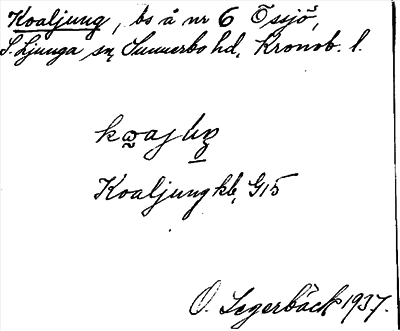 Koaljung, bs å nr 6 Össjö,
S. Ljunga sn, Sunnerbo hd, Kronob. l.
Koaljung kb, G15
O. Segerbäck 1937.